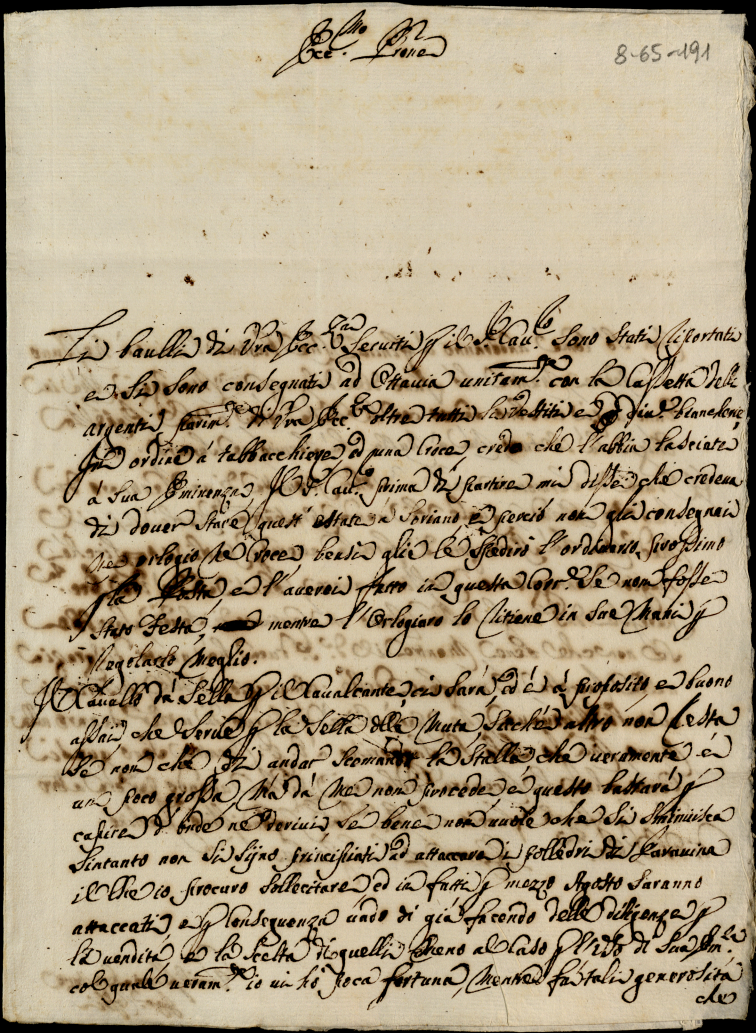 Ecc.mo Prone
8-65-191
Li baulli di Vra Ecc.za Securiti p il S. Cau.to sono Stati riportati
e Si sono consegnati ad Ottavia unitam.e con la Cassetta delli
argenti, parim.e di Vra Ecc.a oltre tutti la vestiti e biancherie
In ordine á tabacchiere ed una Croce, credo che l'abbia lasciati
á Sua Eminenza, Il S. Cau.o prima di partire mi disse, che credeua
di douer Stare quest'estate a Soriano, e perció non gli consegnai
ne orlogio ne Croce, bensi glie le spediró l'ordinario prossimo
p la Posta, e l'auerei fatto in questa Cor. Se non fosse
Stato festa, mentre l'Orlogiaro lo ritiene in Sue Mani p
Regolarlo Meglio.
Il Cauallo dá Sella p il Caualcante ci Sará, ed é á proposito, e buono
assai che Serue p la Sella della Muta, Sicché altro non resta
Se non che di andar Scemando la Stalla che ueramente é
un poco grossa, Ma dá Me non procede, é questo bastará p
capire d'onde ne deriui, Se bene non uuole che Si Sminuisca
Sintanto non Si Sijno principiati ad attaccare i polledri di
il che io procuro Sollecitare, ed in fatti p mezzo Agosto Saranno
attaccati, e p conseguenza uado di giá facendo delle diligenze p
la uendita e la Scelta di quelli che al Caso p l'uso di Sua Em.za
col quale ueram.e io ui hó poca fortuna, Mentre fá tali generositá
che